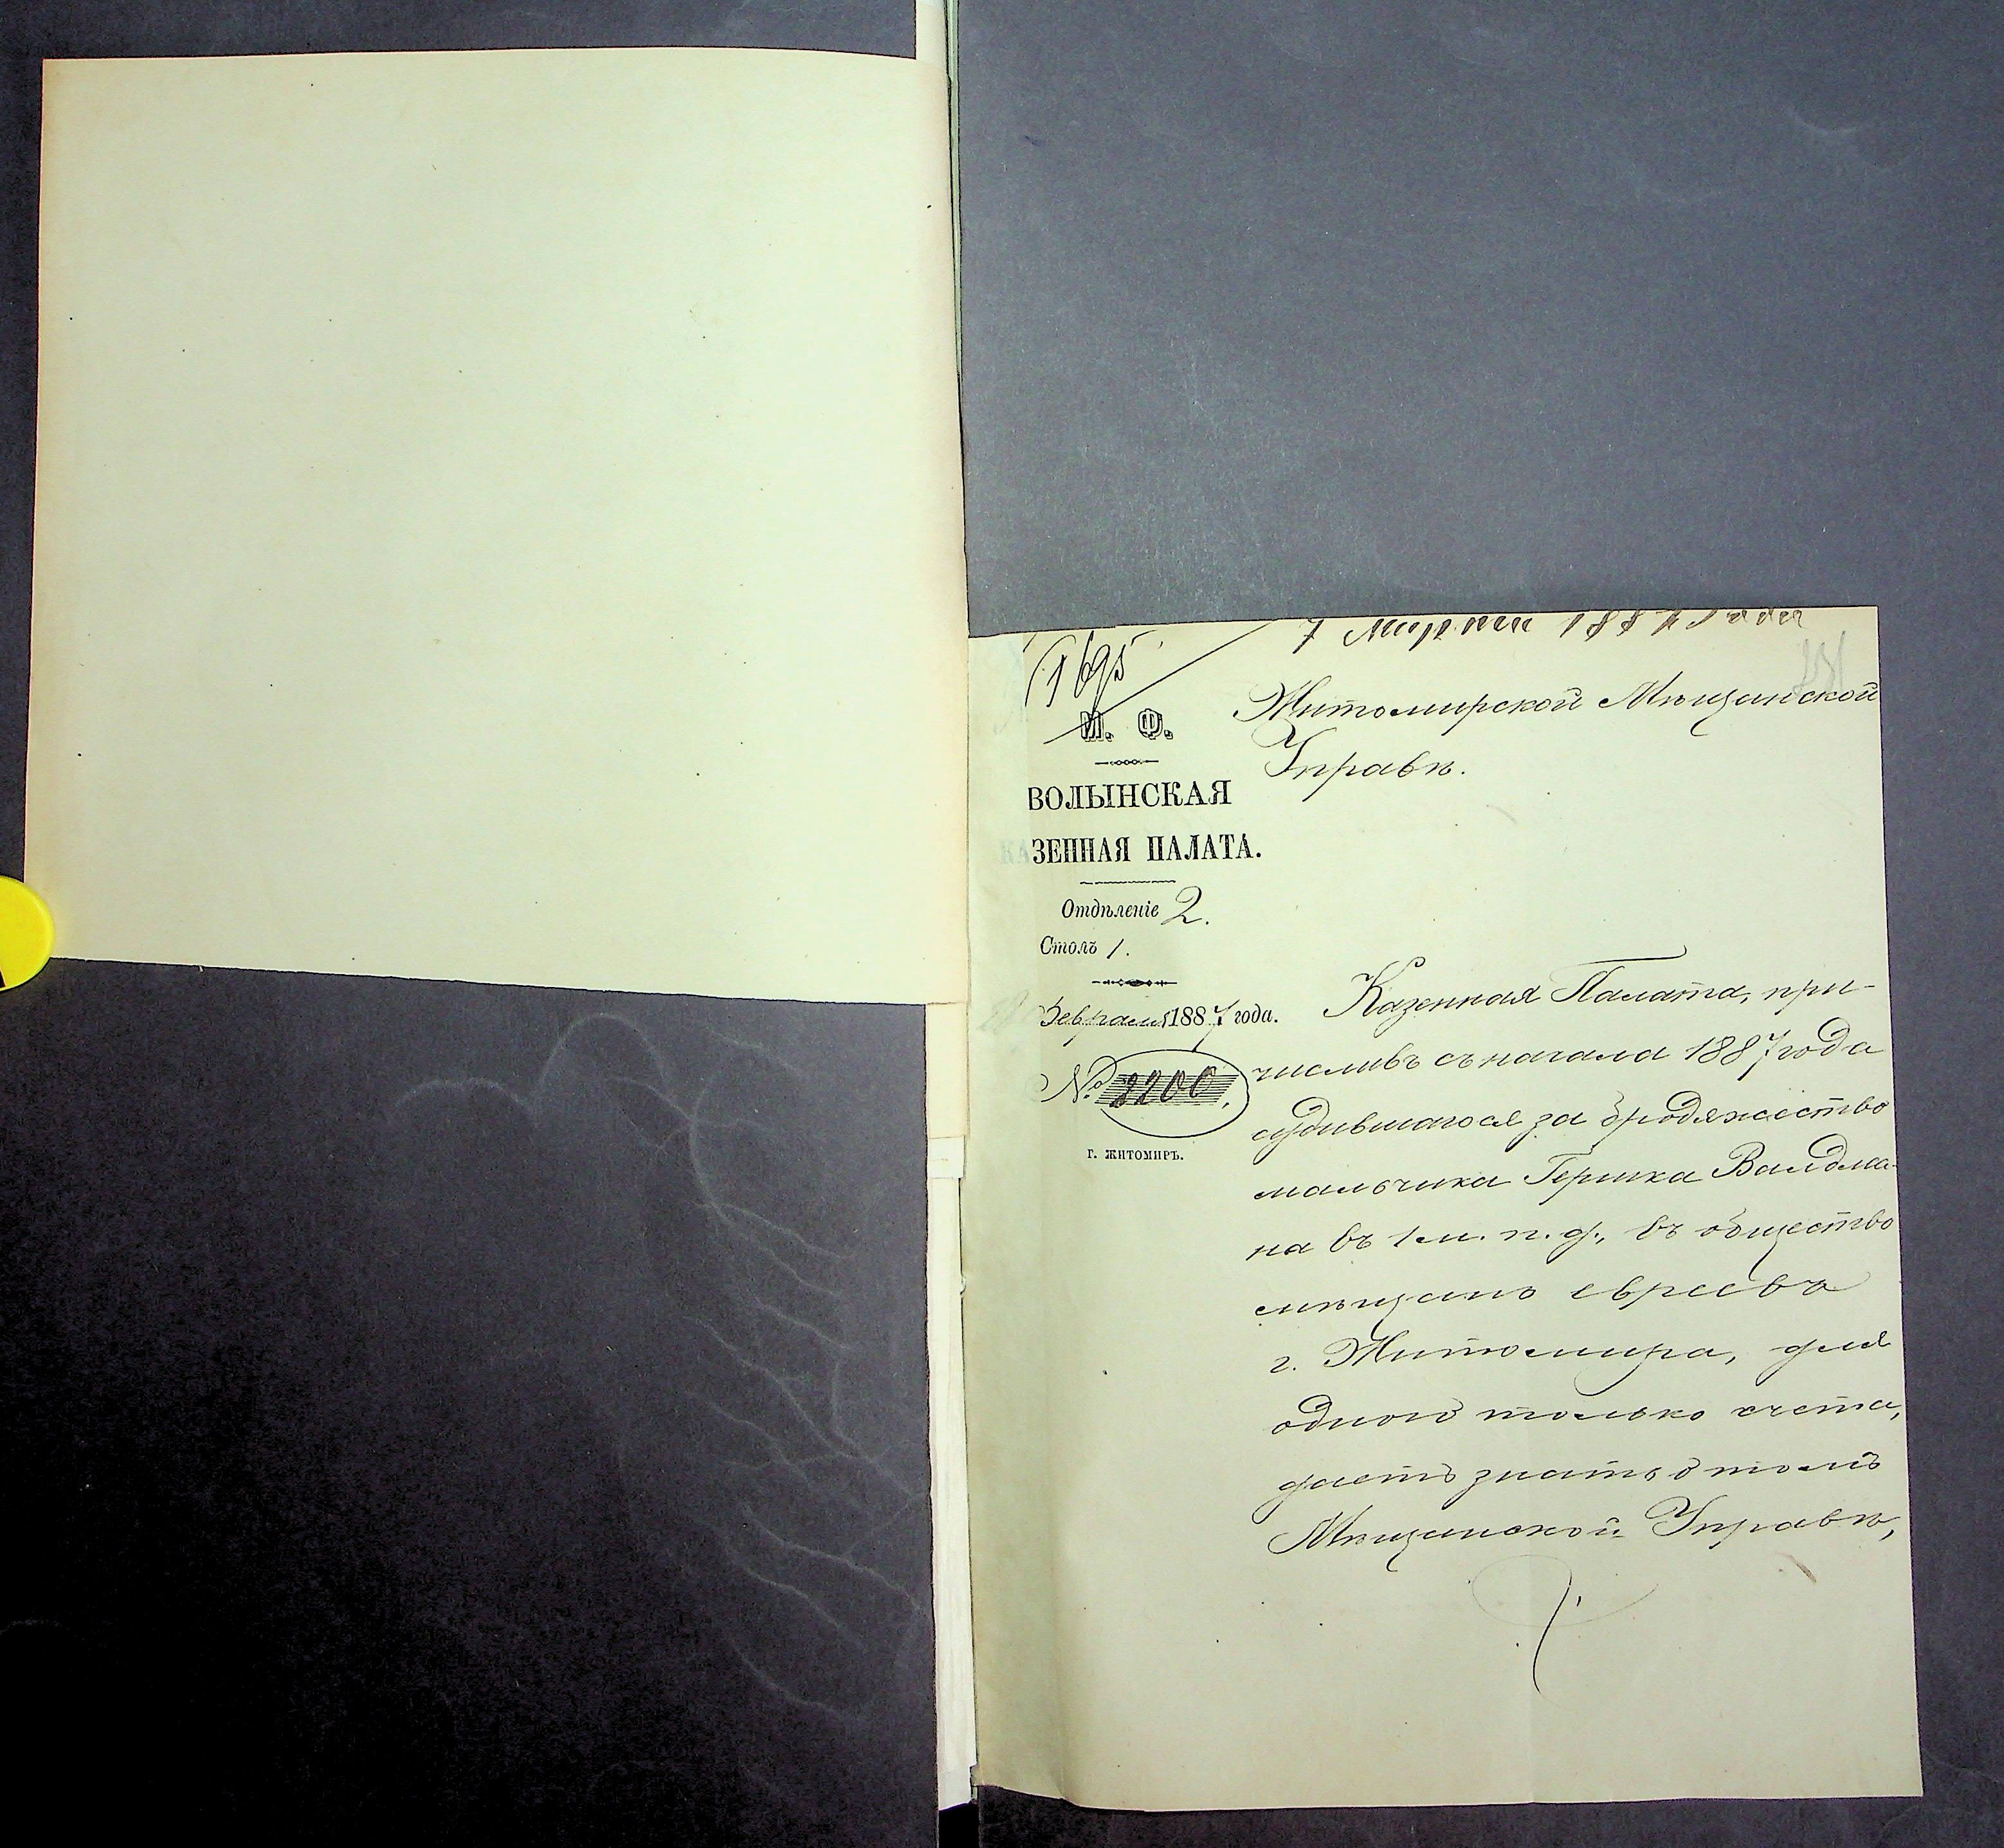 7 Марта 1887 года
1695
М. Ф.
ВОЛЫНСКАЯ
КАЗЕННАЯ ПАЛАТА.
Отдѣленіе 2.
Столъ 1.
Февраля 1887 года.
№ 2200.
Г. ЖИТОМИРЪ.
Житомирской Мѣщанской
Управѣ.
Казенная Палата, при-
числивъ съ начала 1887 года
судившагося за бродяжество
мальчика Гершка Валдма-
на въ 1 м. п. д., въ общество
мѣщанъ евреевъ
г. Житомира, для
одного только счета,
даетъ знать о томъ
Мѣщанской Управѣ,